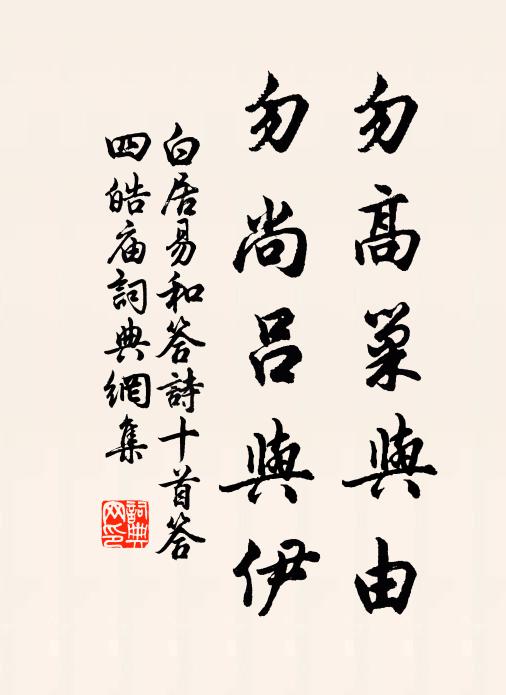 勿高巢與由
勿尚呂與伊
白居易和答詩十首答
四皓庙詞典網集
詞典
网印